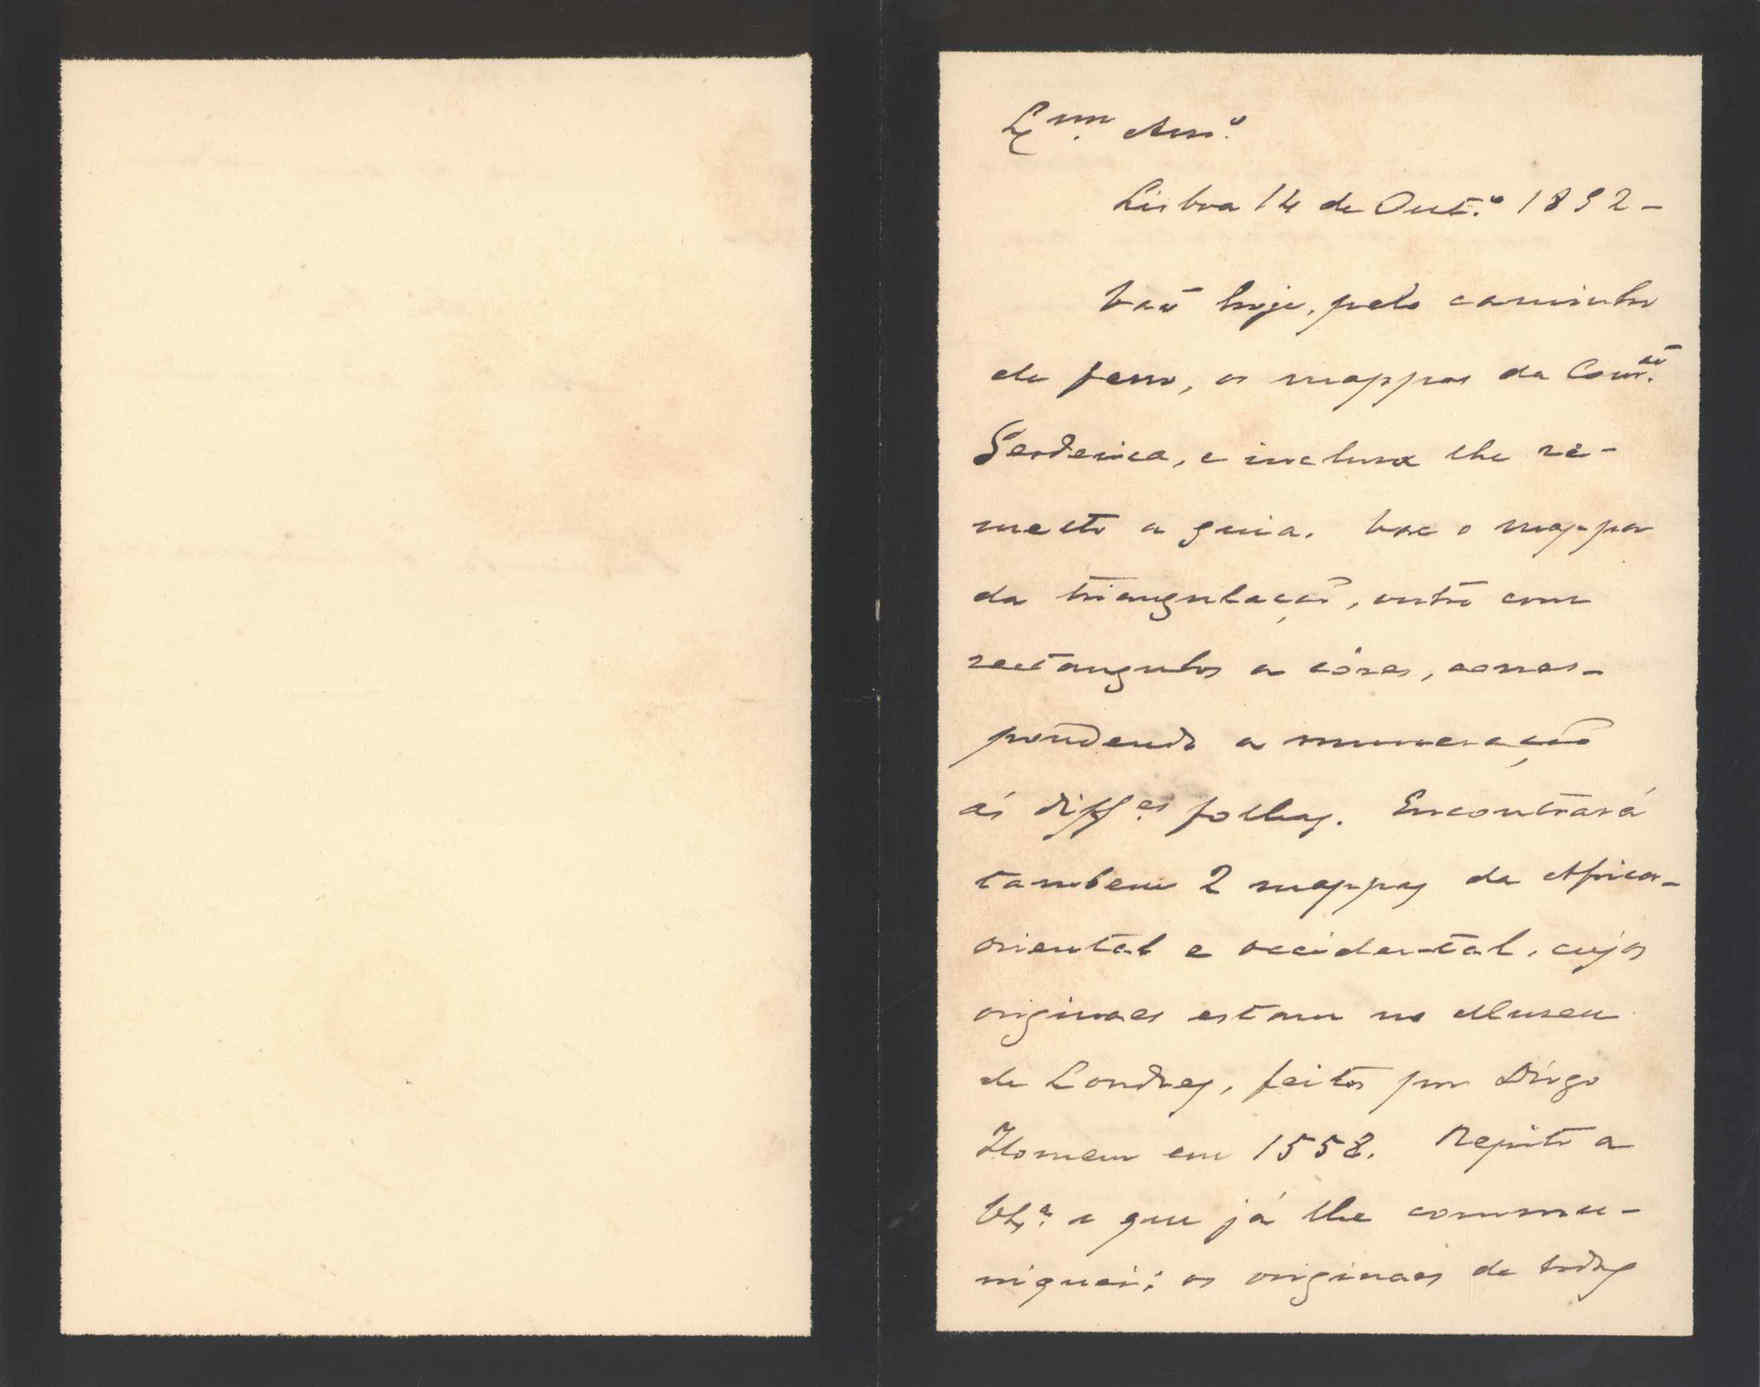 Ex.mo Am.o
Lisboa 14 de Out.o 1892 -
Vaõ hoje, pelo caminho
de ferro, os mappas da Com.aõ
Geodesica, e incluso lhe re-
metto a guia. Vae o mappa
da triangulaçaõ, outro com
rectangulos a côres, corres-
pondendo a numeraçaõ
ás diff.es folhas. Encontrará
tambem 2 mappas da Africa-
oriental e occidental, cujos
originaes estam no Museu
de Londres, feitos por Diogo
Homem em 1558. Repito a
V Ex.a o que já lhe commu-
niquei; os originaes de todos